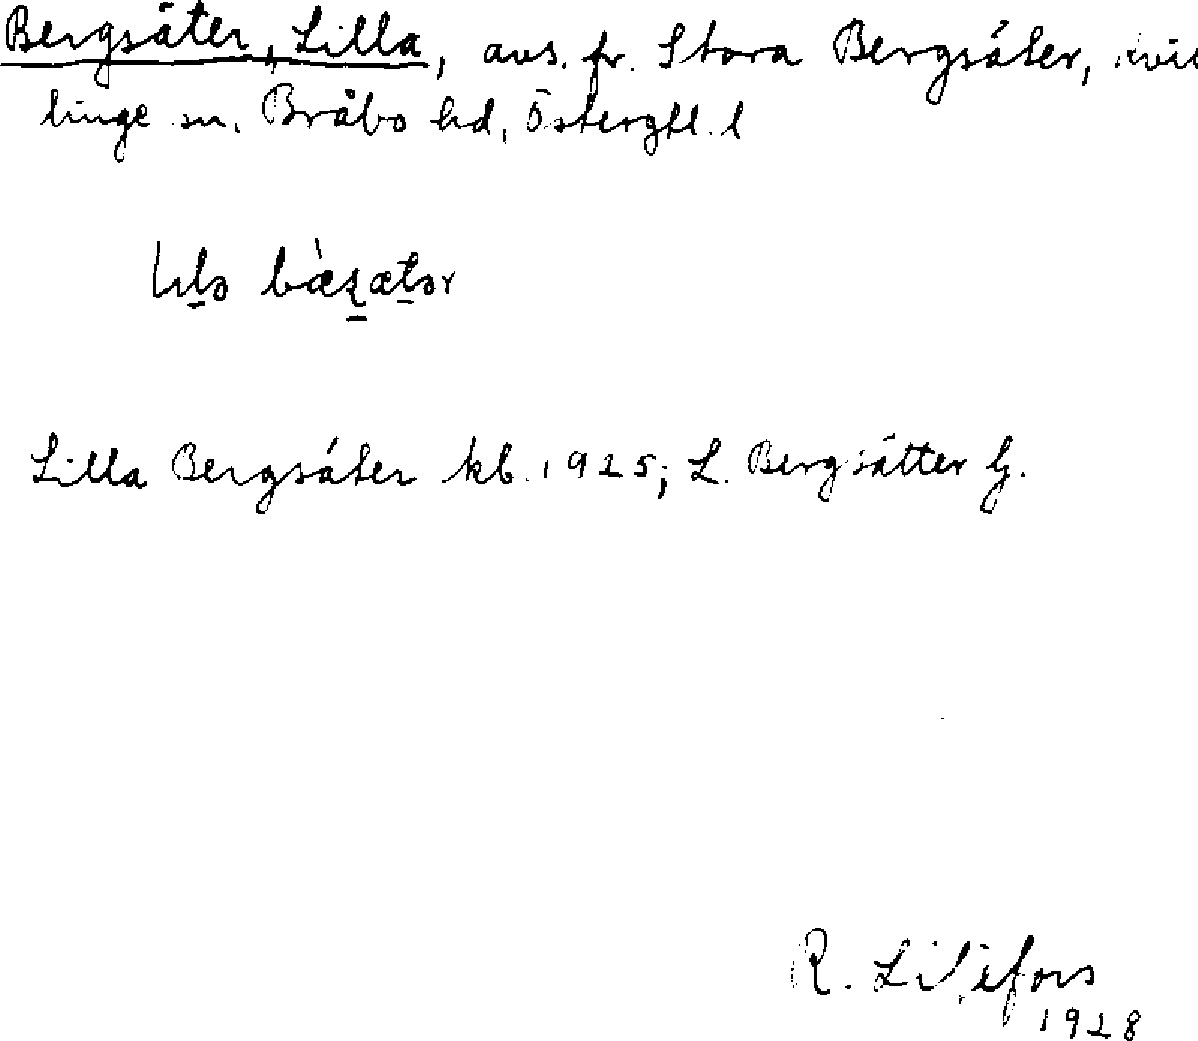 Bergsäter, Lilla, avs. fr. Stora Bergsäter, Kvil
linge sn, Bråbo hd, Östergtl. l
Lilla Bergsäter kb. 1925; L. Bergsätter G.
R. Liljefors
1928